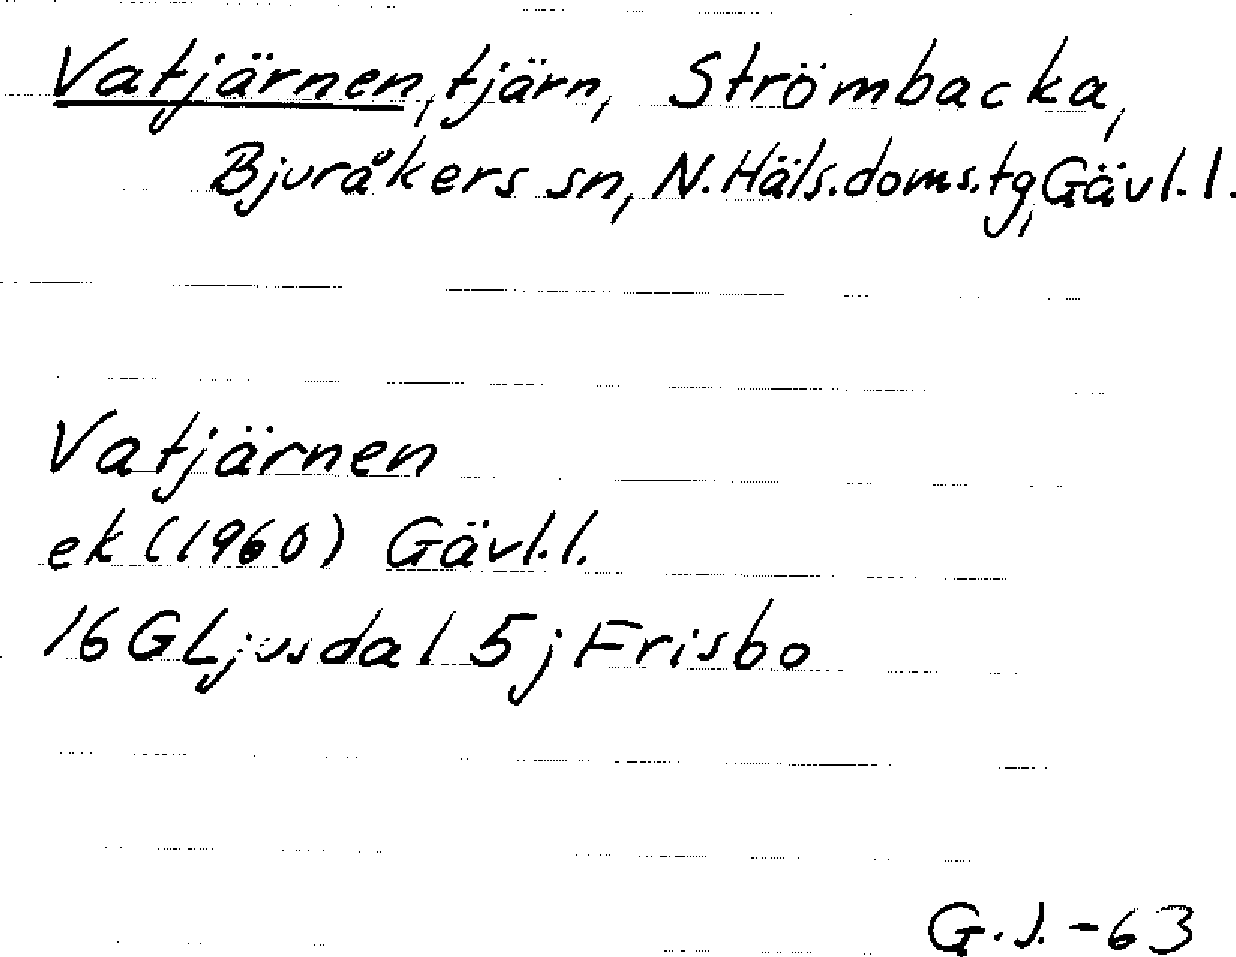 Vatjärnen, tjärn, Strömbacka,
Bjuråkers sn, N. Häls. doms. tg, Gävl. l.
Vatjärnen
ek (1960) Gävl. l.
16 G Ljusdal 5 j Frisbo
G. J. - 63